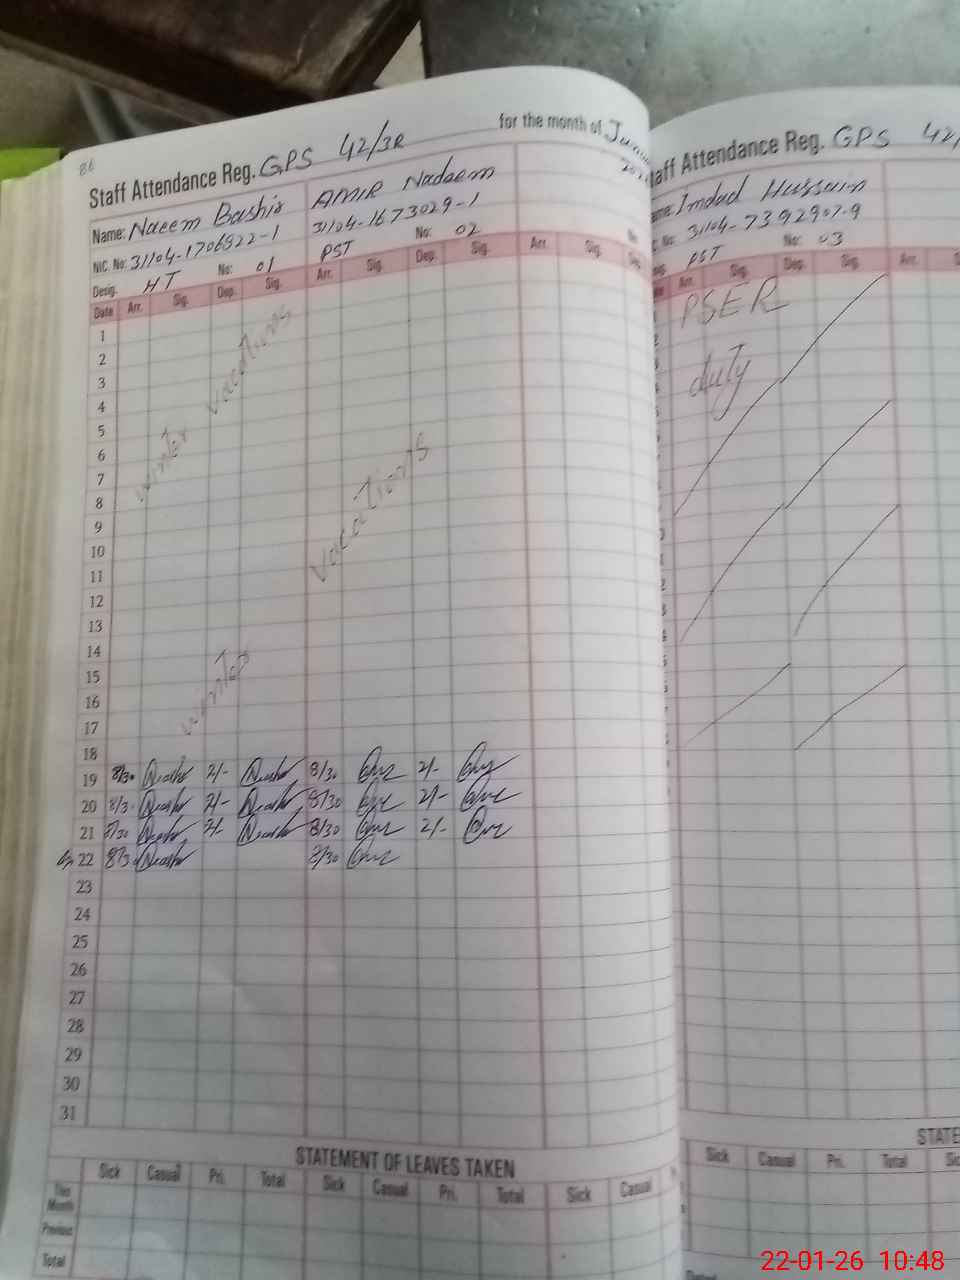 86
Staff Attendance Reg. GPS 42/3R for the month of
Name: Naeem Bashir AMIR Nadeem
NIC. No: 31104-1706922-1 31104-1673029-1
Desig. HT No: 01 PST No: 02
Date Arr. Sig. Dep. Sig. Arr. Sig. Dep. Sig. Arr. Sig.
1
2
3
4
5
6
7
8
9
10
11
12
13
14
15
16
17
18
winter vacations
winter vacations
19 8/30 2/- 8/30 2/-
20 8/3 2/- 8/30 2/-
21 8/30 2/- 8/30 2/-
22 8/3 8/30
23
24
25
26
27
28
29
30
31
STATEMENT OF LEAVES TAKEN
Sick Casual Pri. Total Sick Casual Pri. Total Sick Casual
This Month
Previous
Total
aff Attendance Reg. GPS 42/
me: Imdad Hussain
No: 31104-7392907-9
PST No: 03
Arr. Sig. Dep. Sig. Arr.
PSER
duty
STATE
Sick Casual Pri. Total
22-01-26 10:48